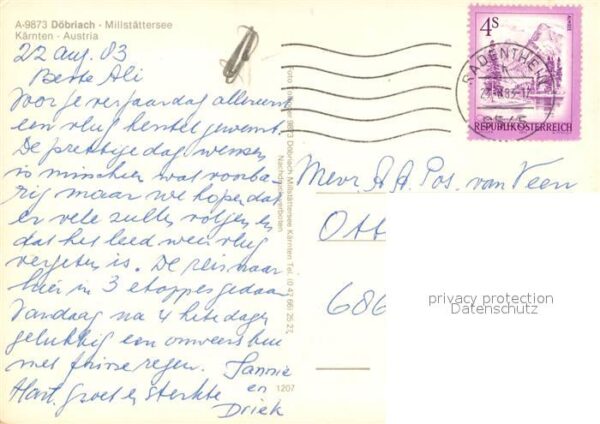 A-9873 Döbriach - Millstättersee
Kärnten - Austria
22 aug. 83
Beste Ali
Voor je verjaardag allereerst
een vlug herstel gewenst.
De prettige dag wensen
is misschien wat voorba-
rig maar we hopen dat
er vele zullen volgen en
dat het leed weer vlug
vergeten is. De reis naar
hier in 3 etappes gedaan
Vandaag na 4 hete dagen
gelukkig een onweersbui
met frisse regen.
Hart. groet en sterkte
Jannie
en
Driek
Nachdruck verboten
1207
4S
REPUBLIK ÖSTERREICH
RADENTHEIN
9545
Mevr. A. A. Pos. van Veen
Ott
686
privacy protection
Datenschutz